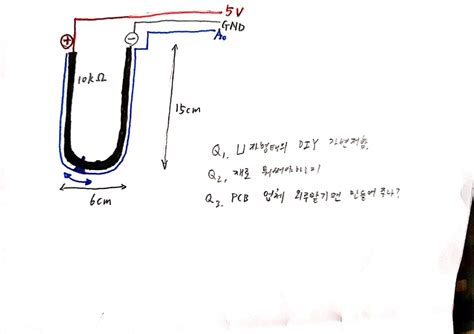 5V
GND
A0
+
-
10kΩ
15cm
6cm
Q1. U자형태의 DIY 가변저항
Q2. 재료 뭐써야하는지
Q3. PCB 업체 외주맡기면 만들어주나?